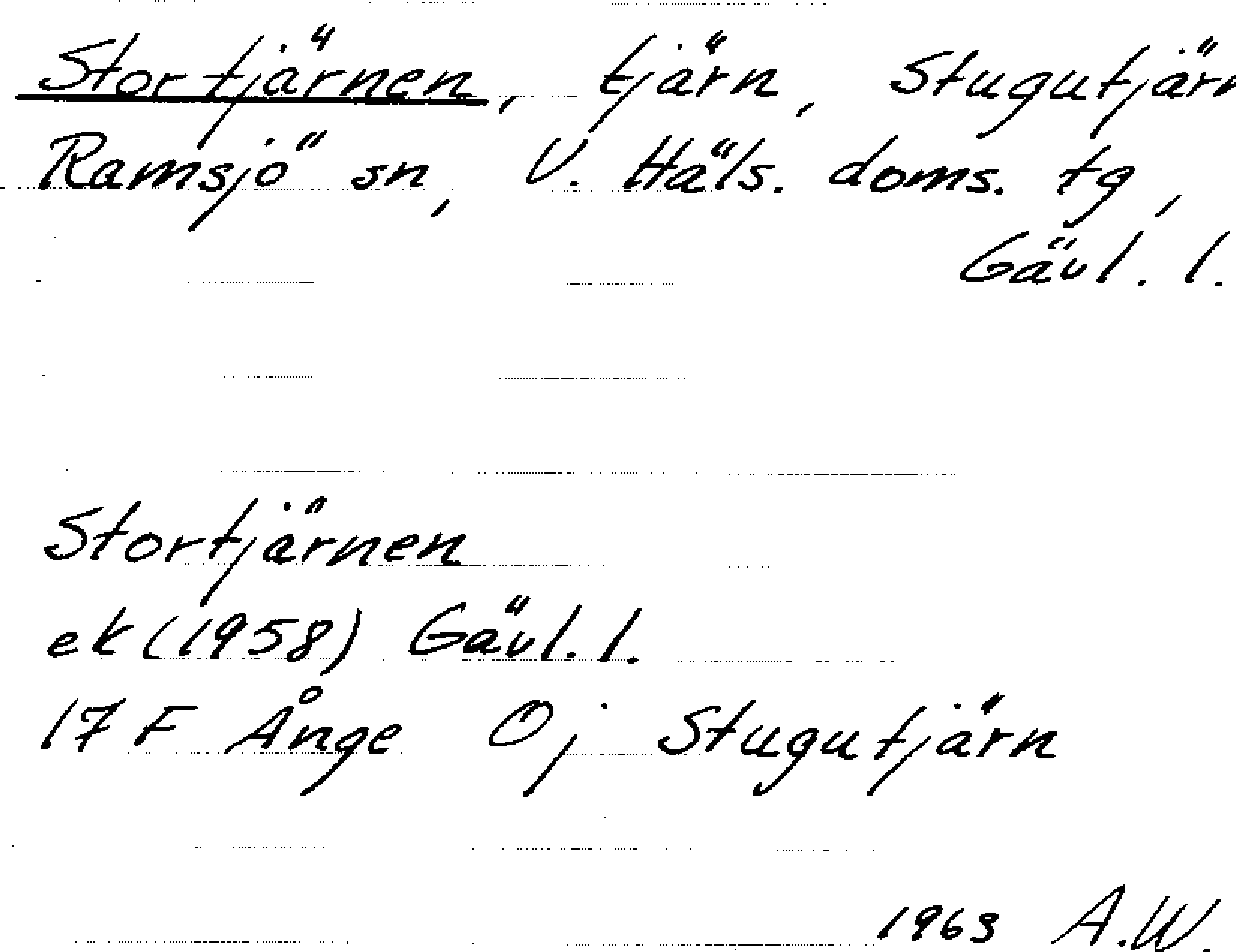 Stortjärnen, tjärn, Stugutjärn
Ramsjö sn, V. Häls. doms. tg,
Gävl. l.
Stortjärnen
ek (1958) Gävl. l.
17 F Ånge 0 j Stugutjärn
1963 A.W.